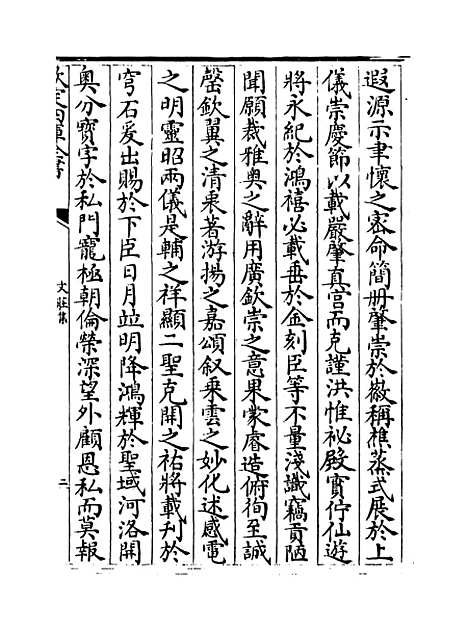 遐源示聿懷之宻命簡册肇崇於徽稱樵蒸式展於上
儀崇慶節以載嚴肇真宫而克謹洪惟祕殿寳佇仙遊
將永紀於鴻禧必載垂於金刻臣等不量淺識竊貢陋
聞願裁雅奥之辭用廣欽崇之意果蒙睿造俯徇至誠
罄欽翼之清衷著游揚之嘉頌叙乗雲之妙化述感電
之明靈昭兩儀是輔之祥顯二聖克開之祐將載刋於
穹石爰出賜於下臣日月竝明降鴻輝於聖域河洛開
奥分寳字於私門寵極朝倫榮深望外顧恩私而莫報
欽定四庫全書
文莊集
二